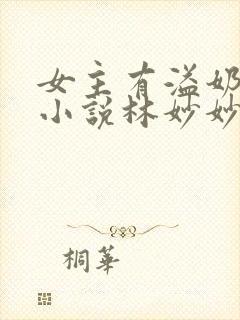 女主有溢奶
小说林妙妙
桐華